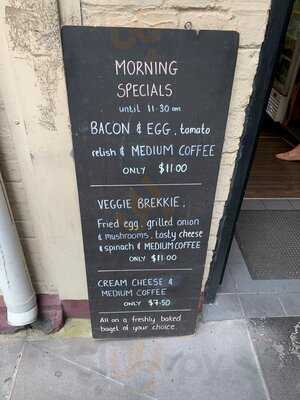 MORNING
SPECIALS
until 11·30 am
BACON & EGG, tomato
relish & MEDIUM COFFEE
ONLY $11.00
VEGGIE BREKKIE;
Fried egg, grilled onion
& mushrooms, tasty cheese
& spinach & MEDIUM COFFEE
ONLY $11.00
CREAM CHEESE &
MEDIUM COFFEE
ONLY $7.50
All on a freshly baked
bagel of your choice.